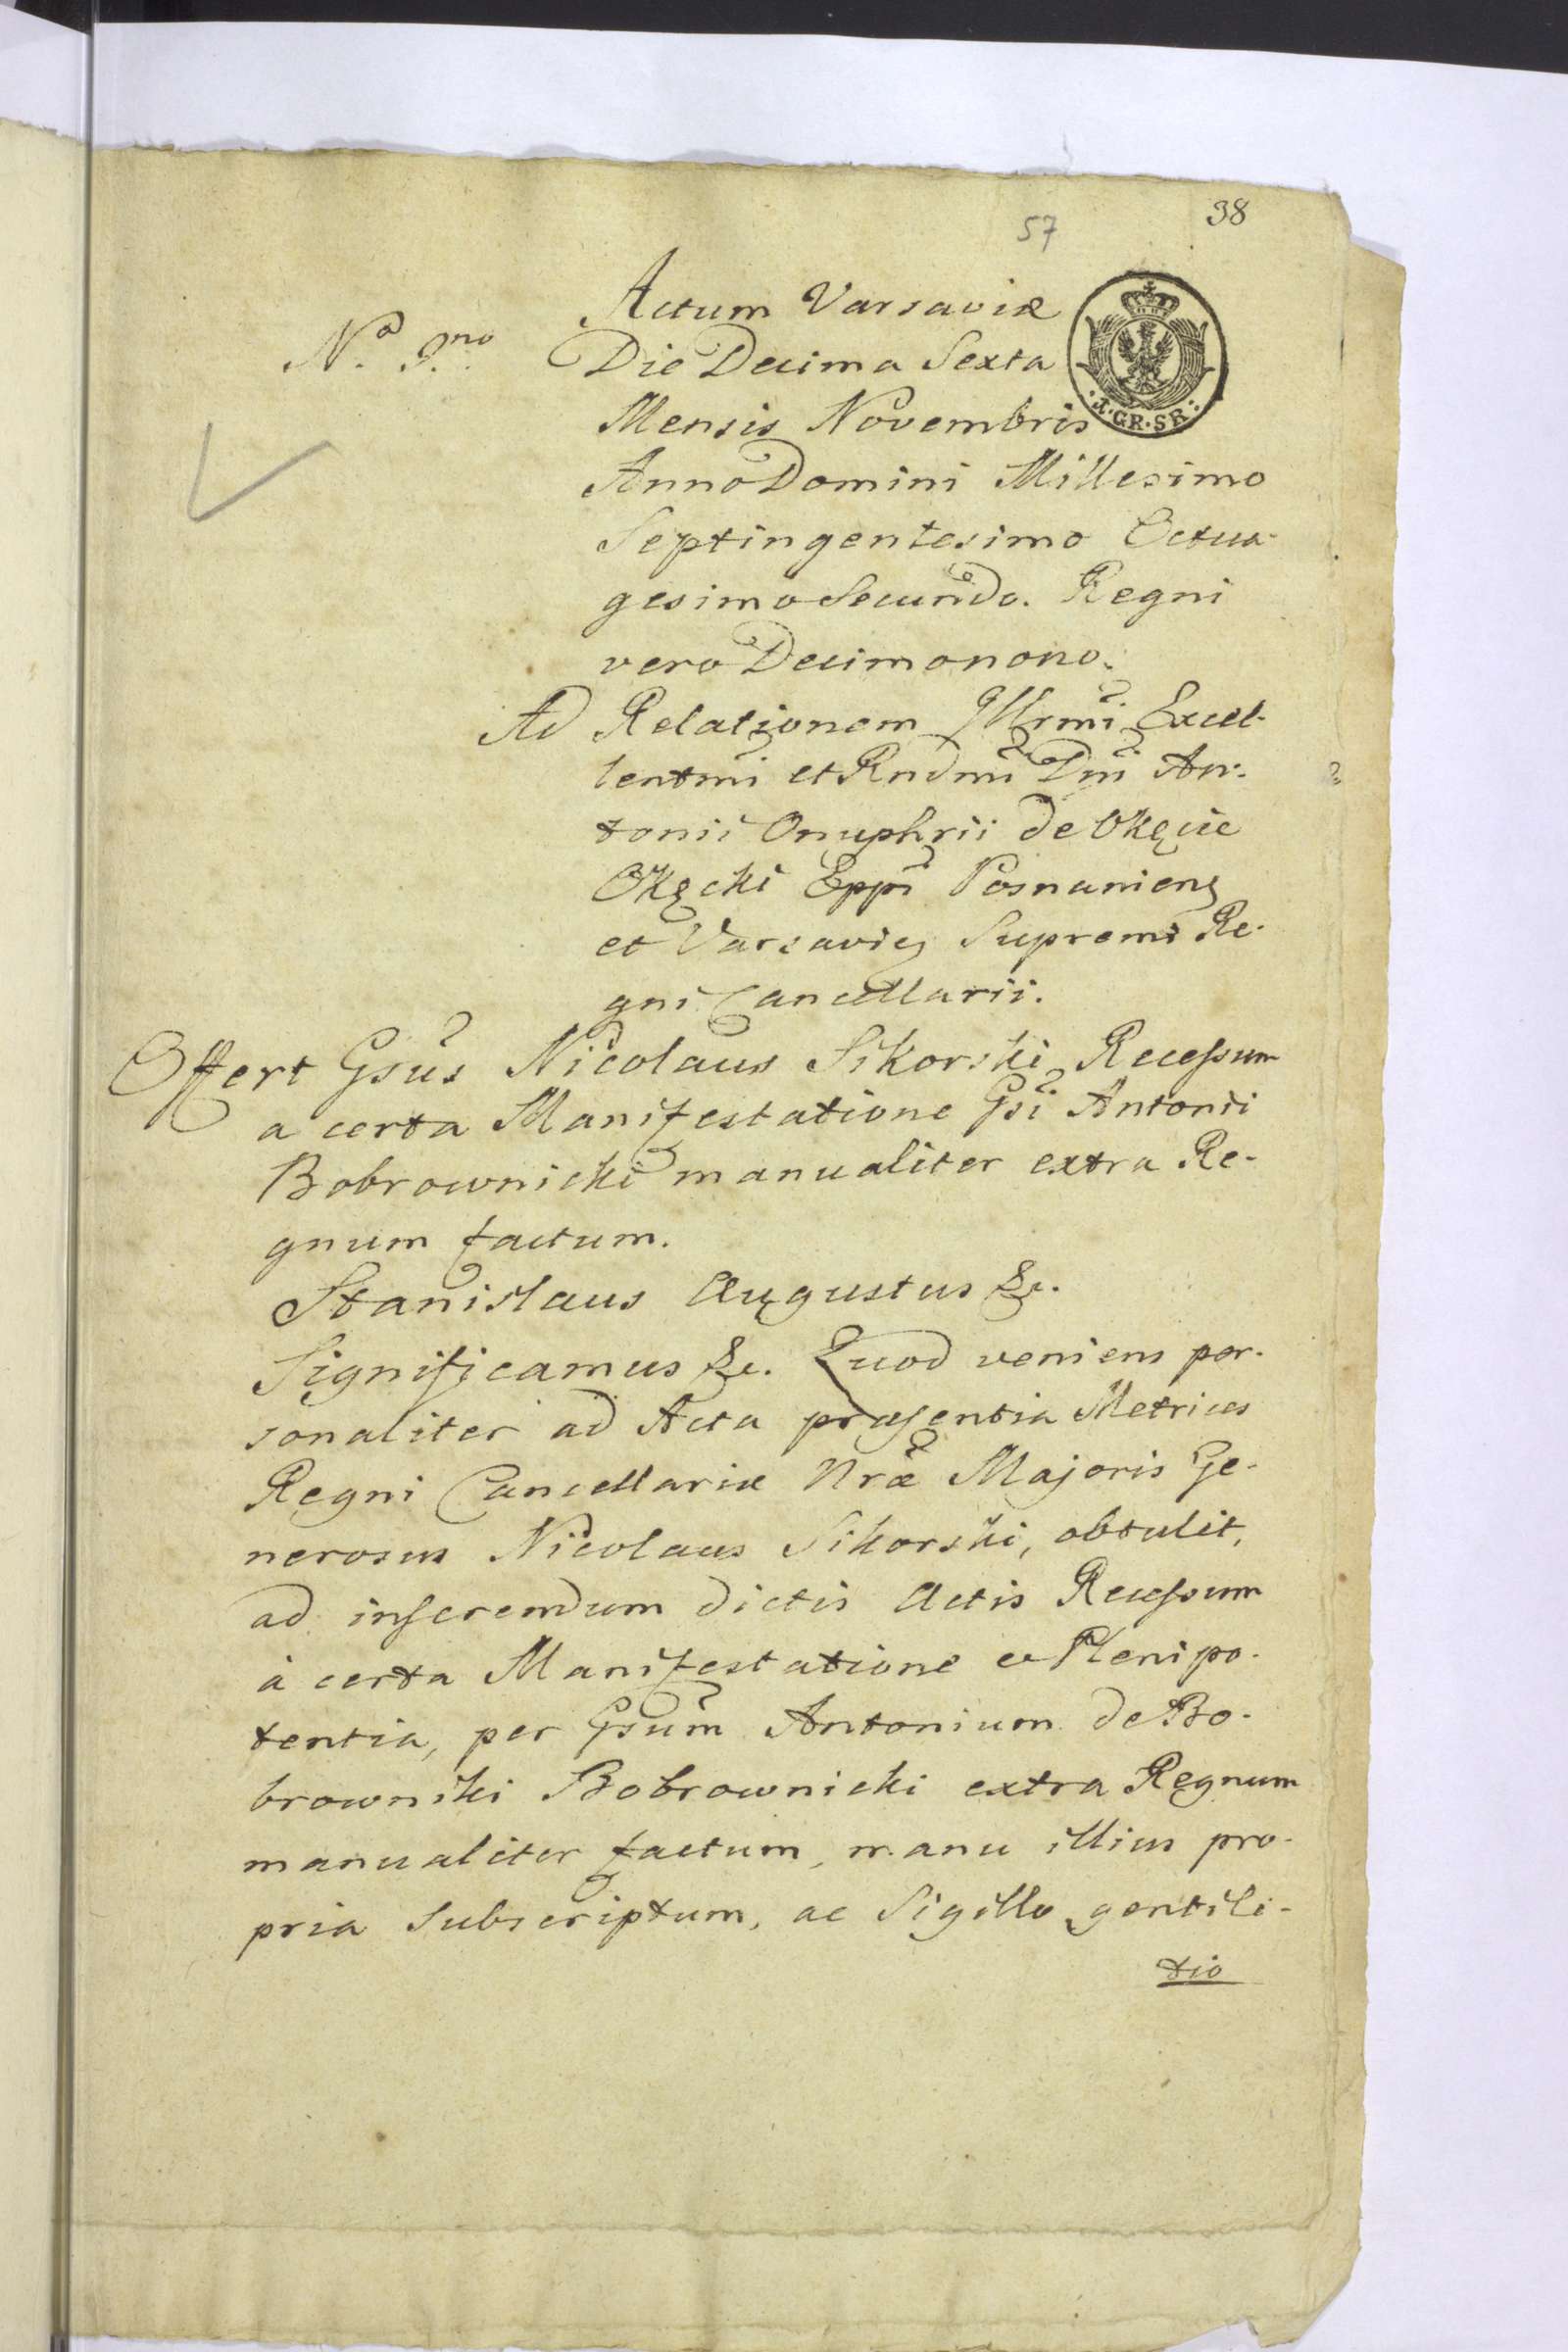 38
57
Actum Varsaviæ
Nº 9no Die Decima Sexta
Mensis Novembris
Anno Domini Millesimo
Septingentesimo Octua-
gesimo Secundo. Regni
vero Decimonono.
Ad Relationem Illrmi Excel-
lentmi et Rndmi Dni An-
tonii Onuphrii de Okęcie
Okęcki Eppi Posnaniens
et Varsavien Supremi Re-
gni Cancellarii.
Offert Gsus Nicolaus Sikorski Recessum
a certa Manifestatione Gsi Antonii
Bobrownicki manualiter extra Re-
gnum factum.
Stanislaus Augustus &c.
Significamus &c. Quod veniens per-
sonaliter ad Acta præsentia Metrices
Regni Cancellariæ Nræ Majoris Ge-
nerosus Nicolaus Sikorski, obtulit,
ad inserendum dictis Actis Recessum
à certa Manifestatione et Plenipo-
tentia, per Gsum Antonium de Bo-
browniki Bobrownicki extra Regnum
manualiter factum, manu illius pro-
pria subscriptum, ac Sigillo gentili-
tio
·1·GR·SR·